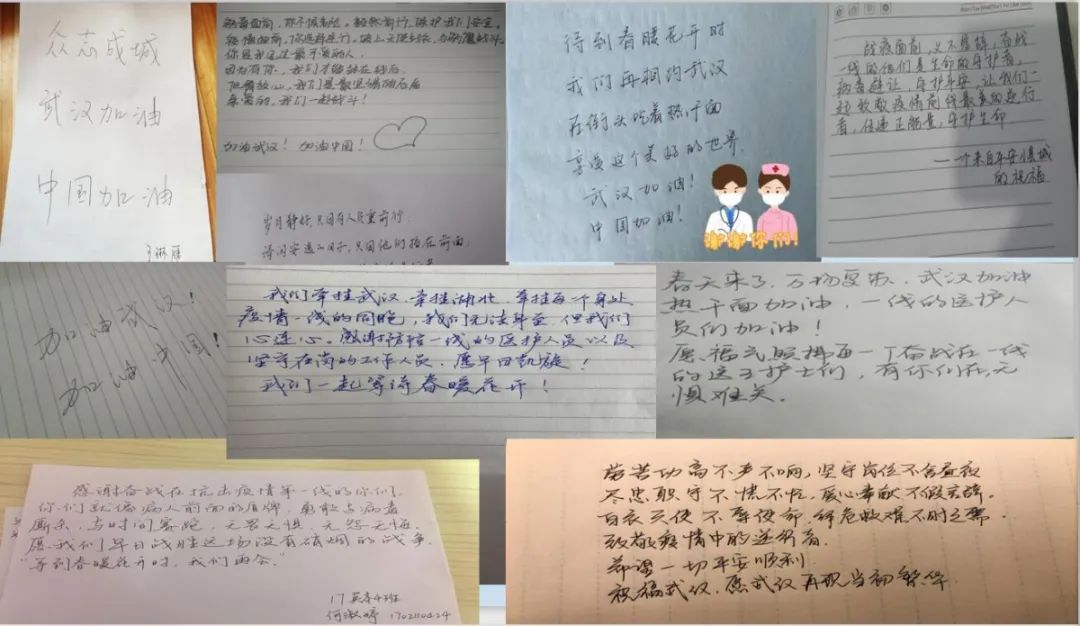 众志成城
武汉加油
中国加油
你是我见过最可爱的人
因为有你，我们才能站在战后
加油武汉！加油中国！
岁月静好，只因有人负重前行
只因他们挡在前面；
待到春暖花开时
我们再相约武汉
在街头吃着热干面
享受这个美好的世界
武汉加油！
中国加油！
谢谢你们！
战疫面前，义不容辞，奋战
一线的他们是生命的守护者，
病毒辟让，守护平安，让我们一
起致敬疫情前线最美的逆行
者，传递正能量，守护生命
一个来自平安
的祝福
加油武汉！
加油中国！
我们牵挂武汉，牵挂湖北，牵挂每一个身处
疫情一线的同胞，我们无法身至，但我们
心连心。感谢防控一线的医护人员以及
坚守在岗的工作人员，愿早日凯旋！
我们一起等待春暖花开！
春天来了，万物复苏，武汉加油
热干面加油，一线的医护人
员们加油！
愿福气照拂每一个奋战在一线
的医护士们，有你们在，无
惧难关。
感谢奋战在抗击疫情第一线的你们，
你们就像病人前面的盾牌，勇敢与病毒
厮杀，与时间赛跑，无畏无惧，无怨无悔，
愿我们早日战胜这场没有硝烟的战争，
“等到春暖花开时，我们再会”
17英本4班
劳苦功高不声不响，坚守岗位不舍昼夜
尽忠职守不慌不忙，爱心奉献不假言辞，
白衣天使不辱使命，纾危救难不时之需
致敬疫情中的逆行者，
希望一切平安顺利
祝福武汉，愿武汉再现当初繁华